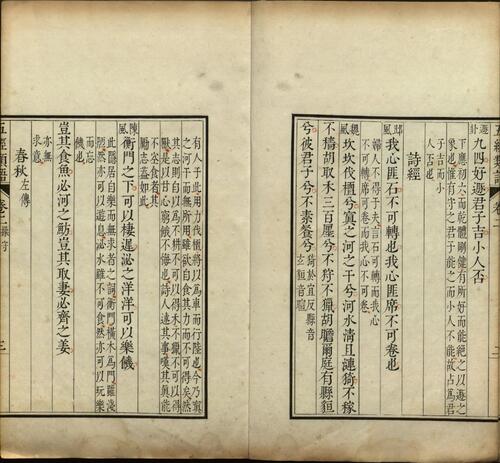 遯卦
九四好遯君子吉小人否
下應初六而乾體剛健有所好而能絕之以遯之
象也惟自克之君子能之而小人不能故占為君
子吉而小
人否也
詩經
邶風
我心匪石不可轉也我心匪席不可卷也
婦人不得于夫言石可轉而我心
不可轉席可卷而我心不可卷
魏風
坎坎伐檀兮寘之河之干兮河水清且漣猗不稼
不穡胡取禾三百廛兮不狩不獵胡瞻爾庭有縣貆
兮彼君子兮不素餐兮
猗於宜反縣音
玄貆音暄
有人于此用力伐檀將以為車而行陸也今乃寘
之河干而無所用雖欲自食其力而不可得矣然
其志則自以為不耕不可以得禾不獵不可以得
獸是以甘心窮餓不悔也詩人述其事嘆其真能
不空食者其
勵志蓋如此
陳風
衡門之下可以棲遲泌之洋洋可以樂饑
此隱居自樂而無求者之詞衡門橫木為門雖淺
陋然亦可以遊息泌水雖不可食然亦可以玩樂
而忘
饑也
豈其食魚必河之魴豈其取妻必齊之姜
亦無
求意
春秋 左傳
五經類語 卷二 操守 三